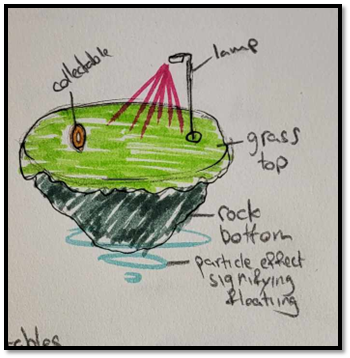 collectable
lamp
grass
top
rock
bottom
particle effect
signifying
floating